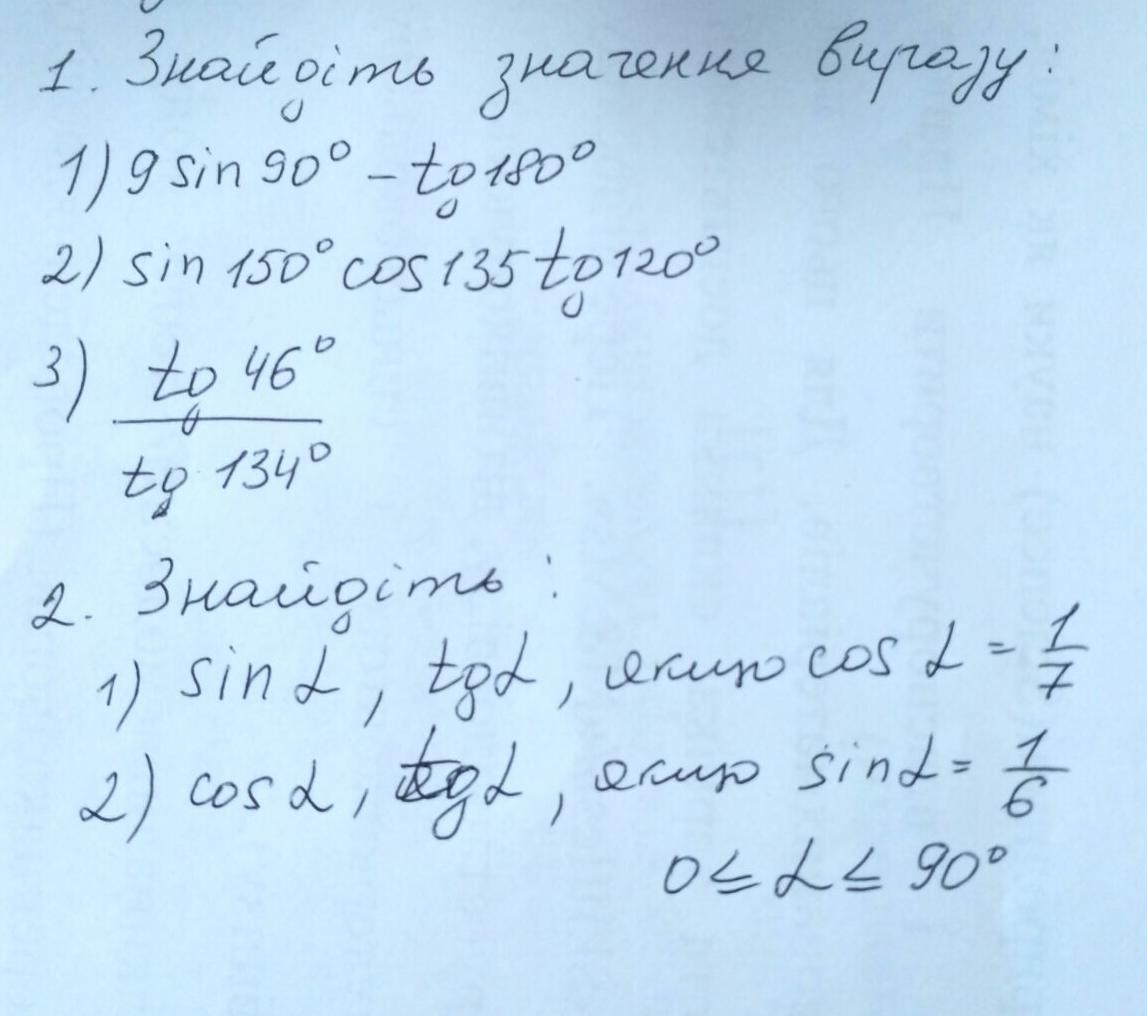 1. Знайдіть значення виразу:
1) 9 sin 90° - tg 180°
2) sin 150° cos 135 tg 120°
3) tg 46°
tg 134°
2. Знайдіть:
1) sin α, tg α, якщо cos α = 1/7
2) cos α, tg α, якщо sin α = 1/6
0 ≤ α ≤ 90°